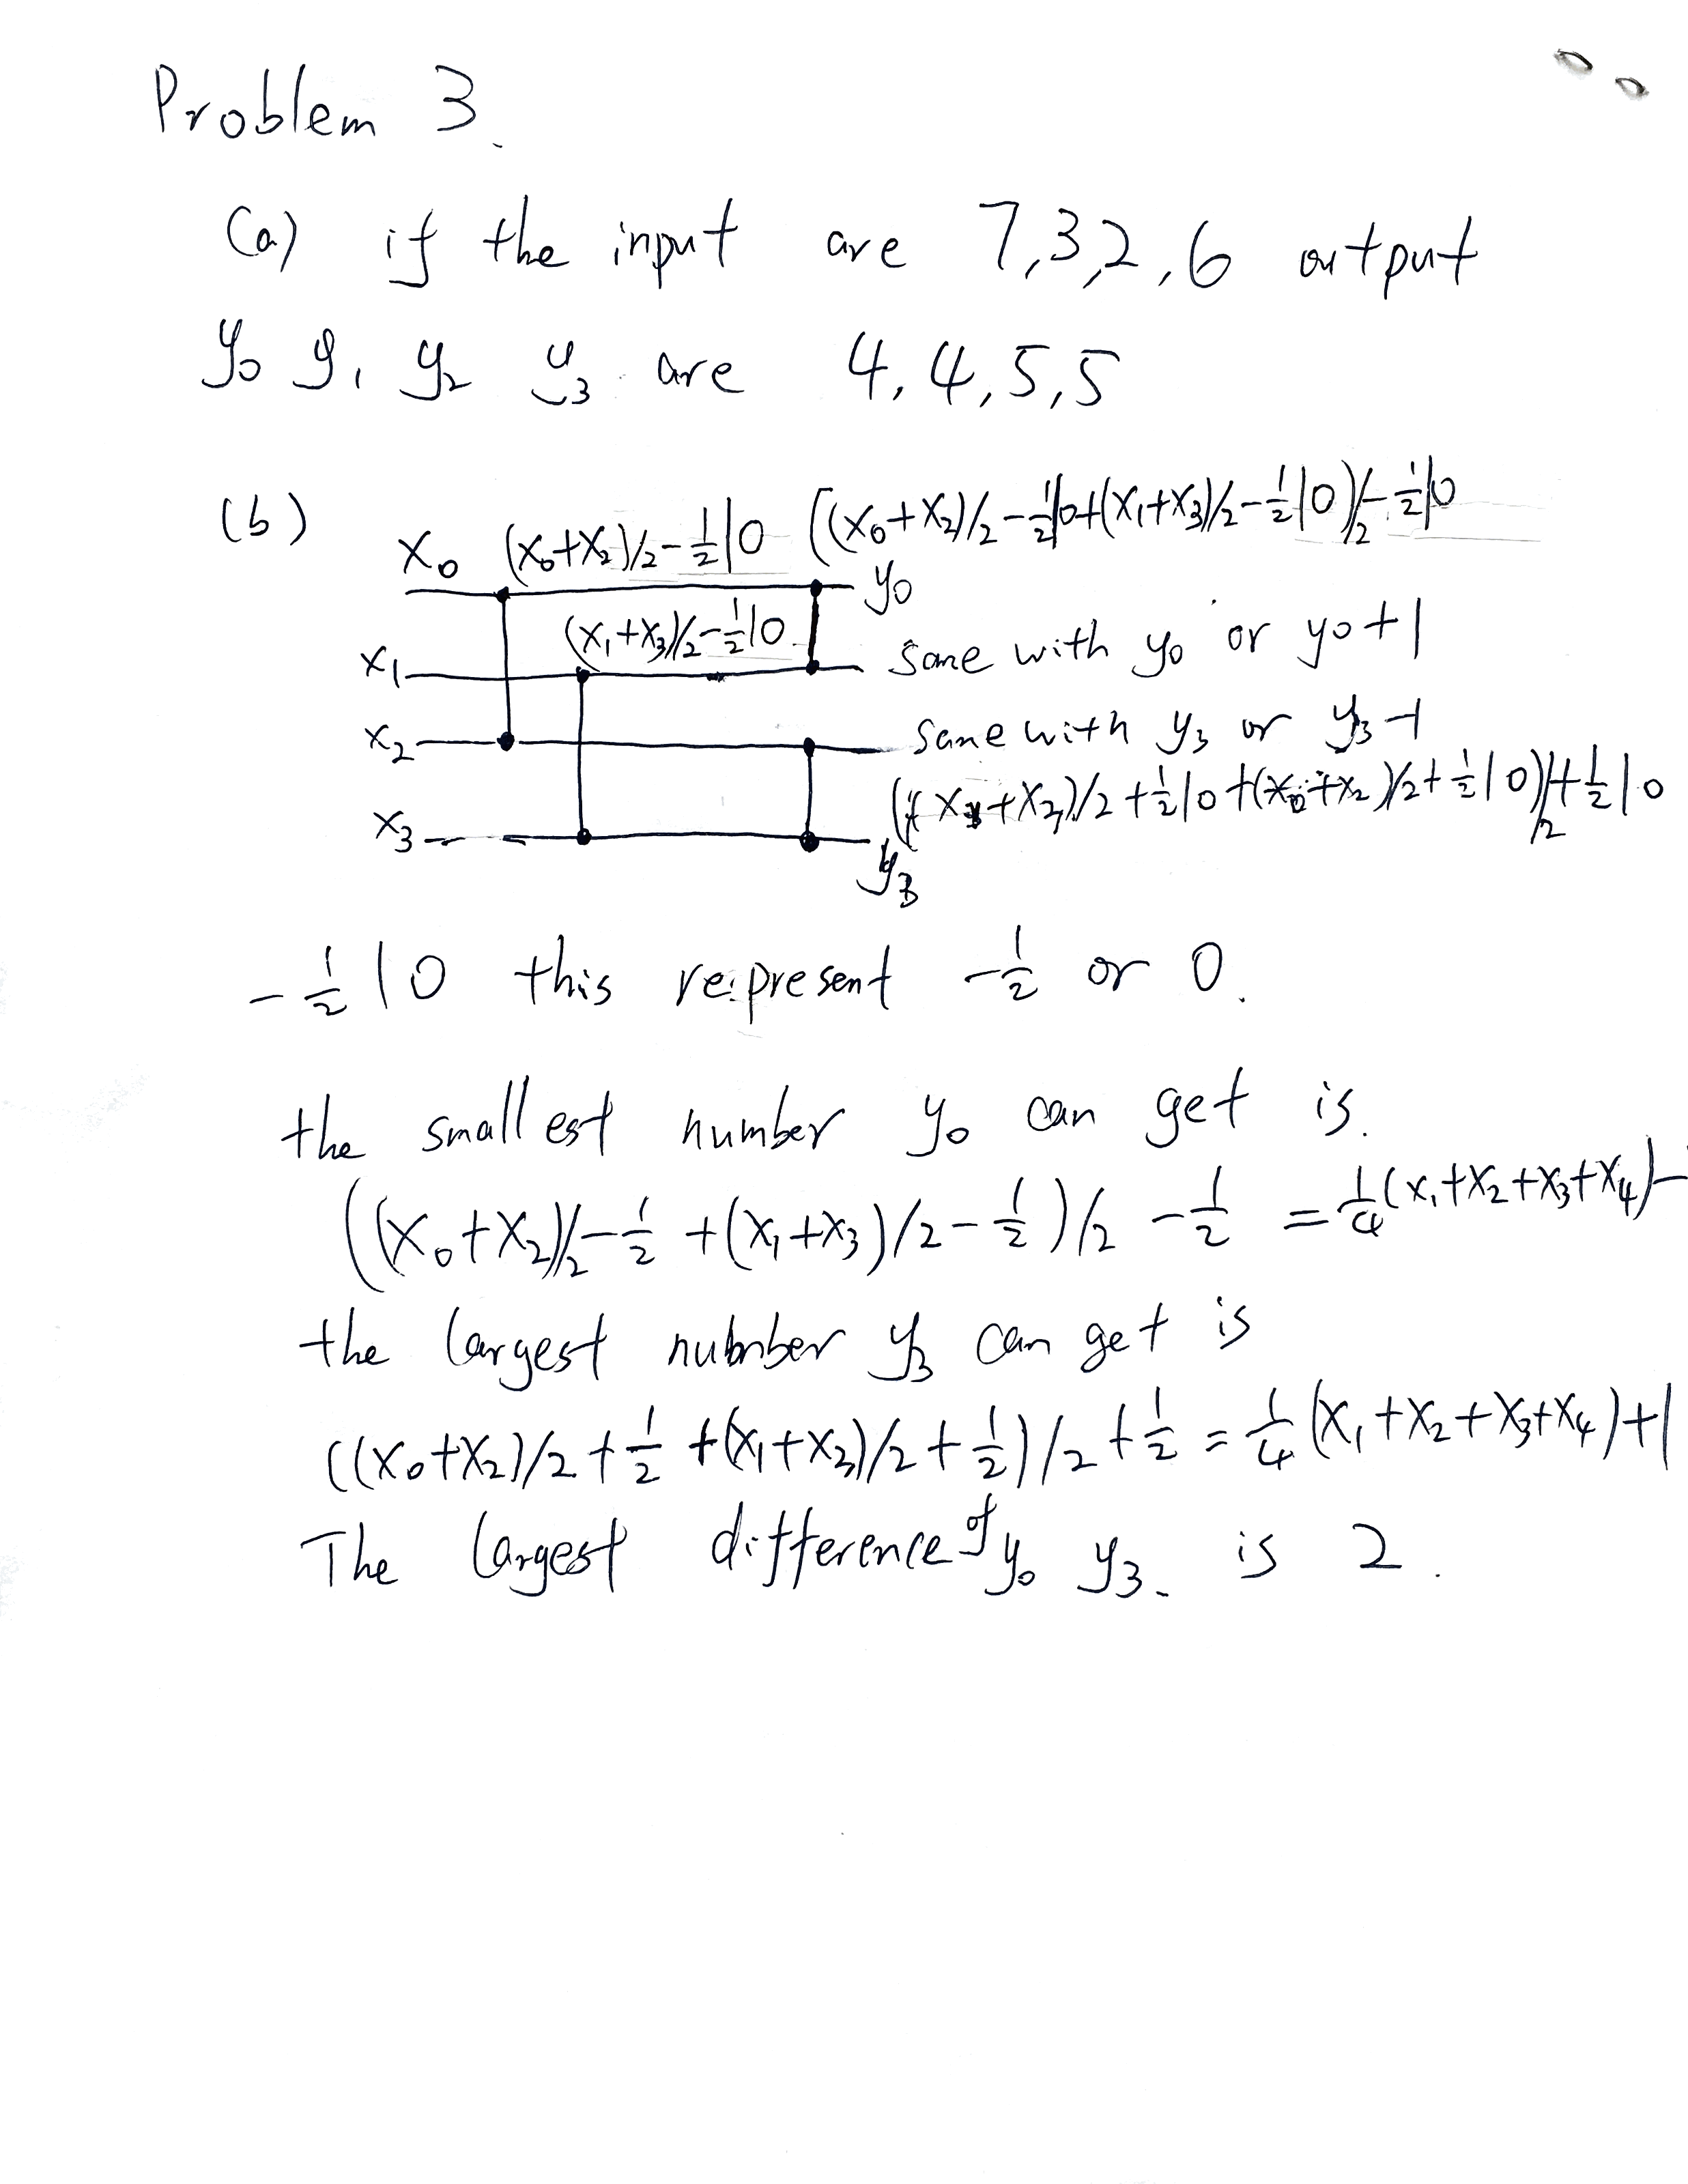 Problem 3.
(a) if the input are 7,3,2,6 output
y₀ y₁ y₂ y₃ are 4,4,5,5
(b)
X₀ (X₀+X₂)/2-½|0 ((X₀+X₂)/2-½|0+(X₁+X₃)/2-½|0)/2-½|0
y₀
(X₁+X₃)/2-½|0
X₁ same with y₀ or y₀+1
X₂ same with y₃ or y₃-1
X₃ +X₃)/2+½|0+(X₀+X₂)/2+½|0)/2+½|0
y₃
-½|0 this represent -½ or 0.
the smallest number y₀ can get is.
((X₀+X₂)/2-½+(X₁+X₃)/2-½)/2-½=¼(X₁+X₂+X₃+X₄)-
the largest number y₃ can get is
((X₀+X₂)/2+½+(X₁+X₃)/2+½)/2+½=¼(X₁+X₂+X₃+X₄)+1
The largest difference of y₀ y₃. is 2.